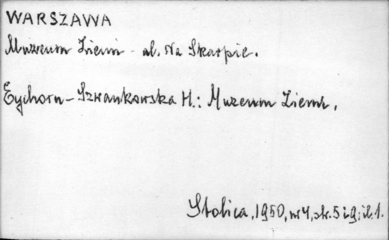 WARSZAWA
Muzeum Ziemi - al. Na Skarpie.
Eychorn-Szwankowska H.: Muzeum Ziemi.
Stolica, 1950, nr 4, str. 5 i 9; il. 1.